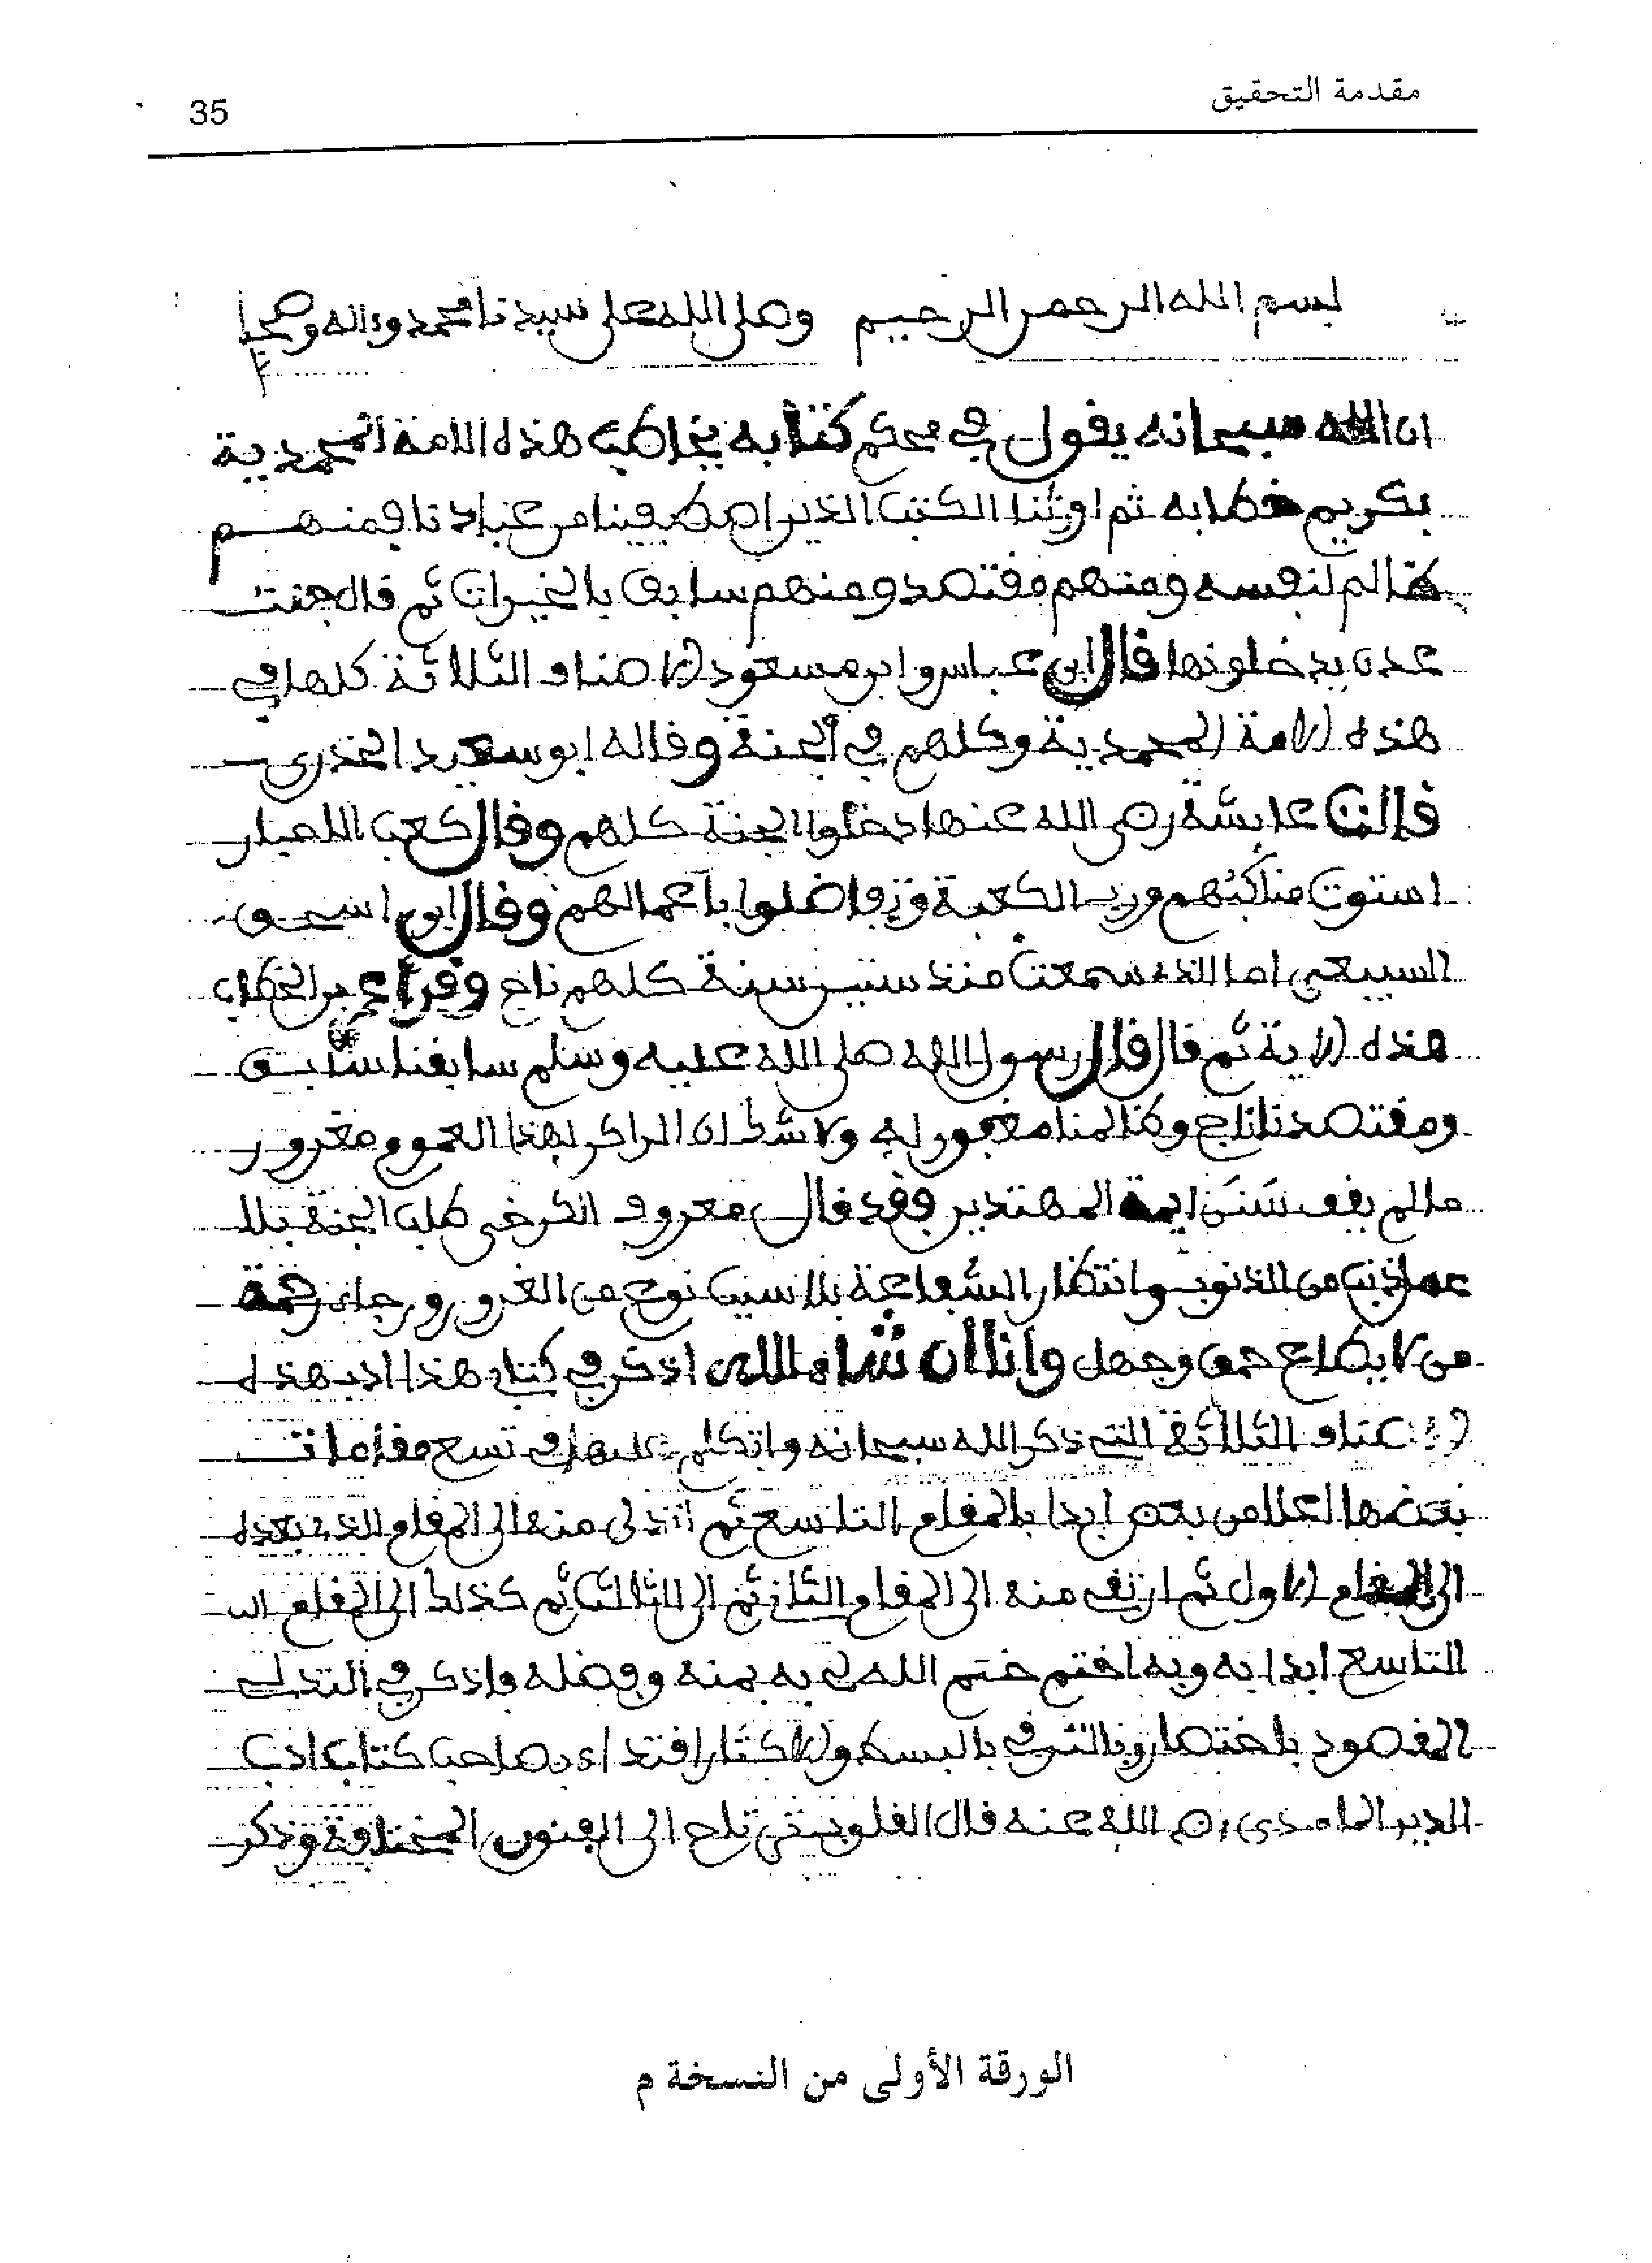 مقدمة التحقيق
35
بسم الله الرحمن الرحيم وصلى الله على سيدنا محمد وءاله وصحبه
ان الله سبحانه يقول في محكم كتابه يخاطب هذه الامة المحمدية
بكريم خطابه ثم اورثنا الكتب الذين اصطفينا من عبادنا فمنهم
ظالم لنفسه ومنهم مقتصد ومنهم سابق بالخيرات ثم قال جنت
عدن يدخلونها قال ابن عباس وابن مسعود الاصناف الثلاثة كلها في
هذه الامة المحمدية وكلهم في الجنة وقاله ابو سعيد الخدري
قالت عايشة رضي الله عنها دخلوا الجنة كلهم وقال كعب الاحبار
استوت مناكبهم ورب الكعبة وتفاضلوا باعمالهم وقال ابو اسحق
السبيعي اما الذي سمعت منذ ستين سنة كلهم ناج وقرأ عمر بن الخطاب
هذه الاية ثم قال قال رسول الله صلى الله عليه وسلم سابقنا سابق
ومقتصدنا ناج وظالمنا مغفور له ولا شك ان الراكن لهذا العموم مغرور
مالم يقف سنن ايمة المهتدين فقد قال معروف الكرخي طلب الجنة بلا
عمل ذنب من الذنوب وانتظار الشفاعة بلا سبب نوع من الغرور ورجاء رحمة
من لا يطاع حمق وجهل وانا ان شاء الله اذكر في كتابي هذا ادب هذه
الاصناف الثلاثة التي ذكر الله سبحانه واتكلم عليها في تسع مقامات
بعضها اعلا من بعض ابدا بالمقام التاسع ثم اتدلى منه الى المقام الذي بعده
الى المقام الاول ثم ارتقي منه الى المقام الثاني ثم الى الثالث ثم كذلك الى المقام
التاسع ابدا به وبه اختم ختم الله لي به بمنه وفضله واذكر في التدلي
المقصود باختصار وبالترقي بالبسط والاكثار اقتداء بصاحب كتاب ادب
الدين الماوردي رضي الله عنه قال القلوب ترتاح الى الفنون المختلفة وذكر
الورقة الأولى من النسخة م